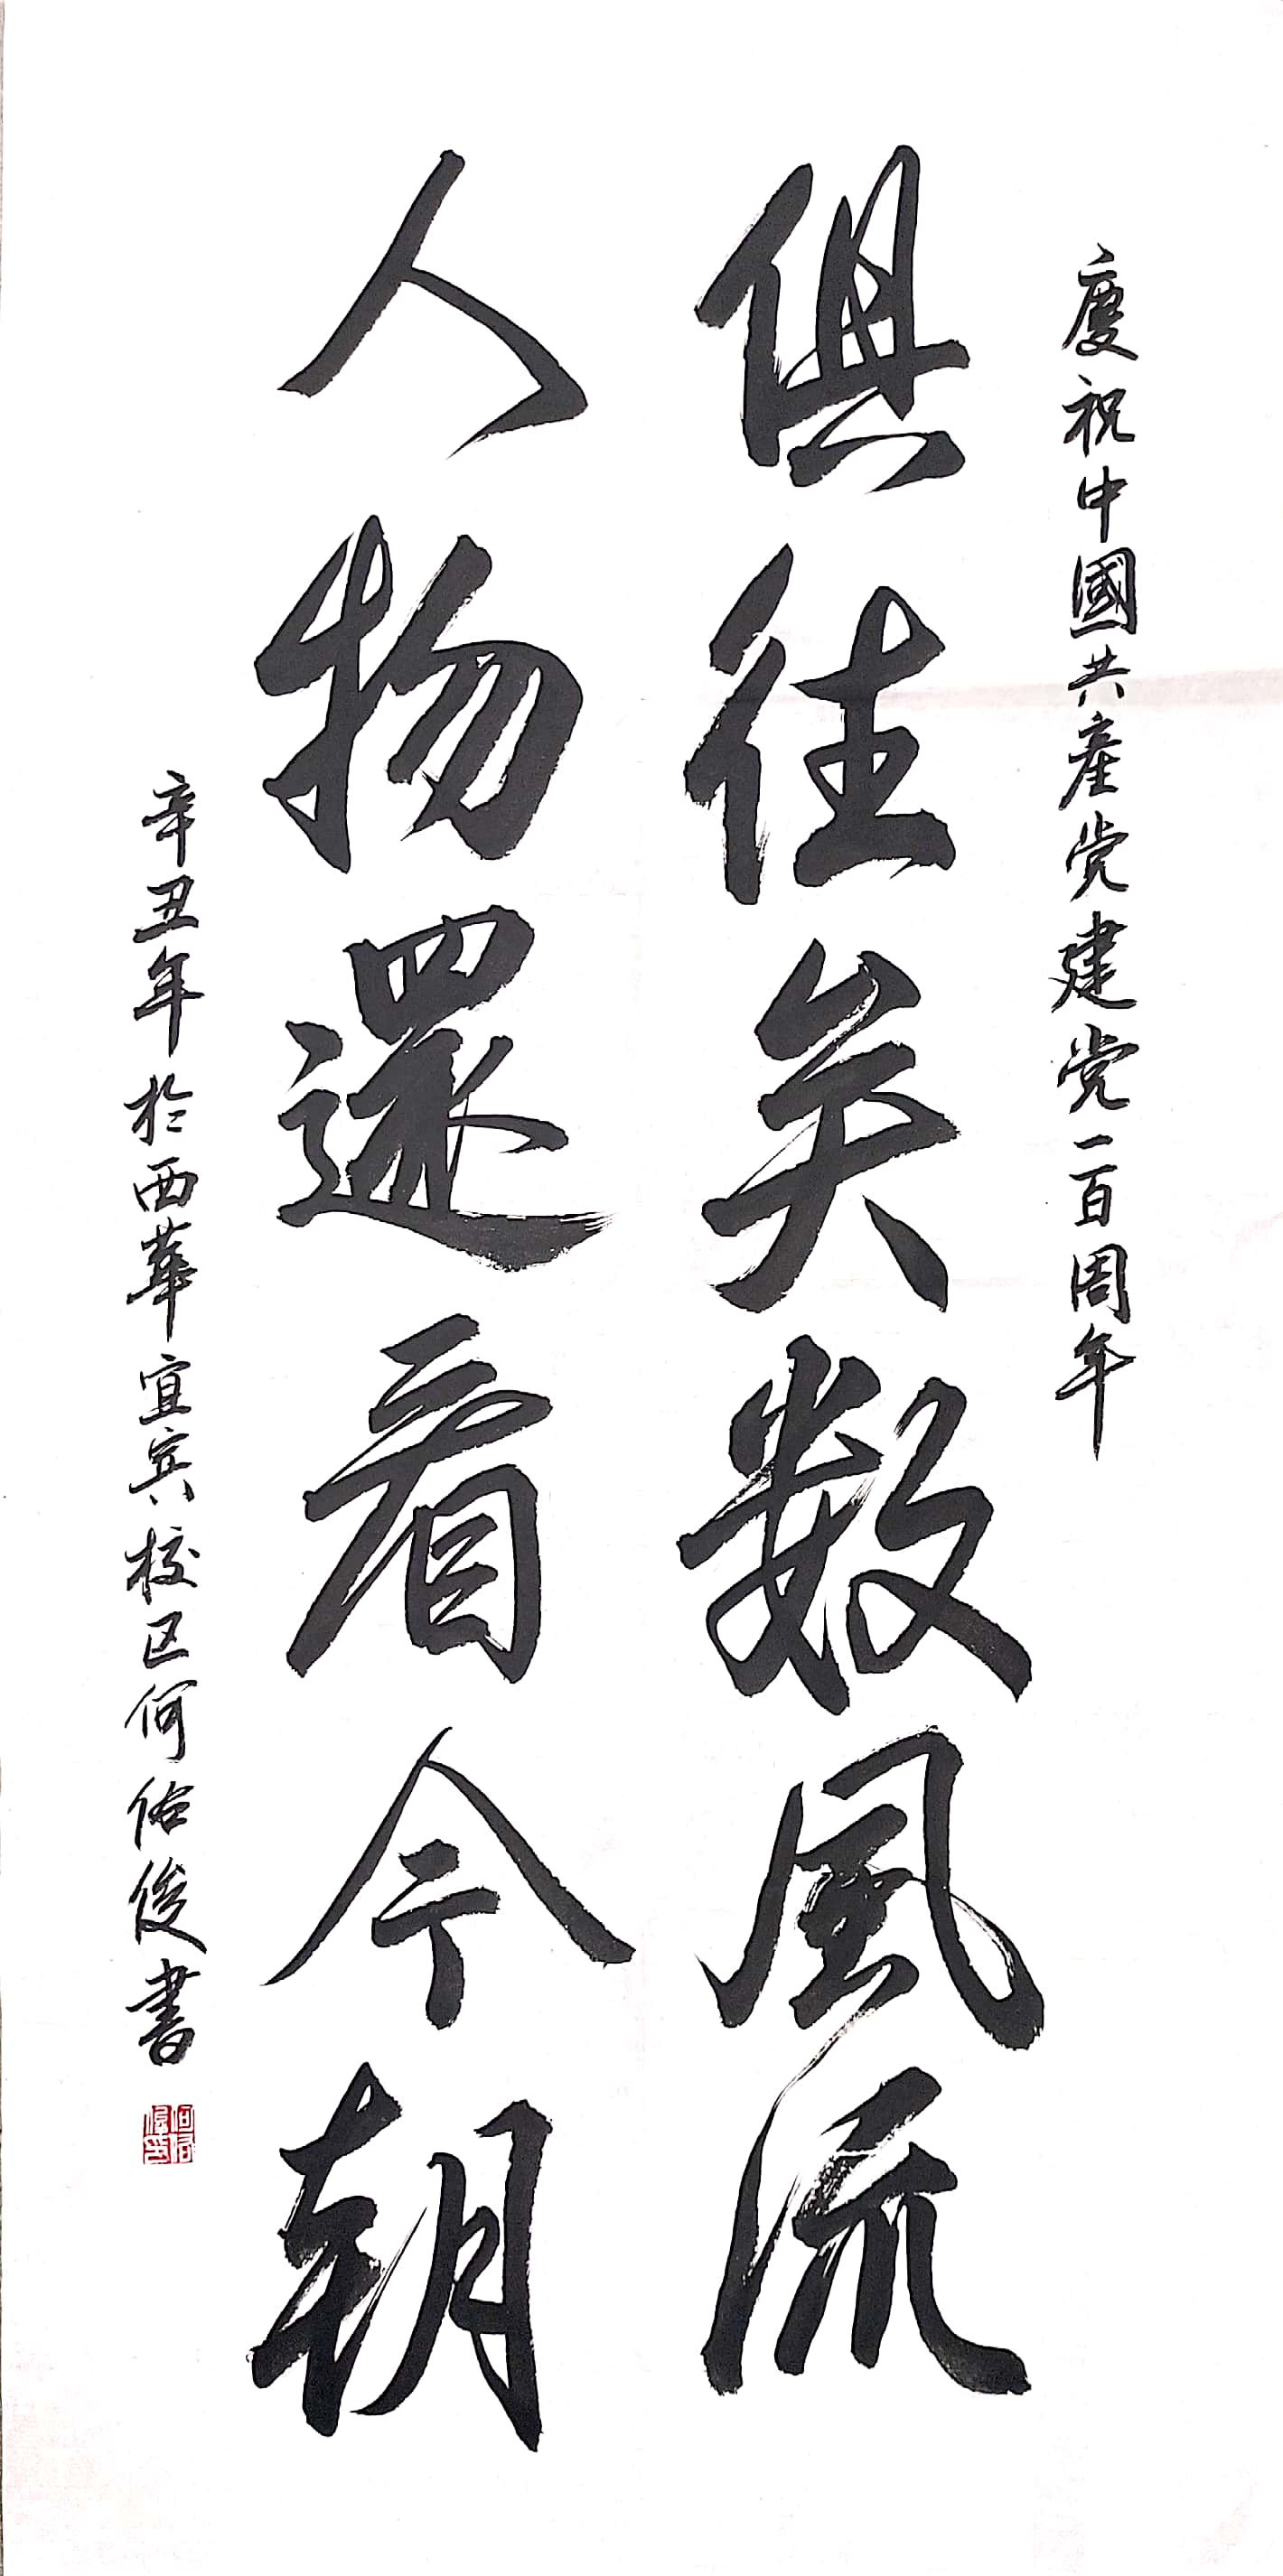 慶祝中國共産党建党一百周年
俱往矣数風流
人物還看今朝
辛丑年於西華宜宾校区何佑俊書